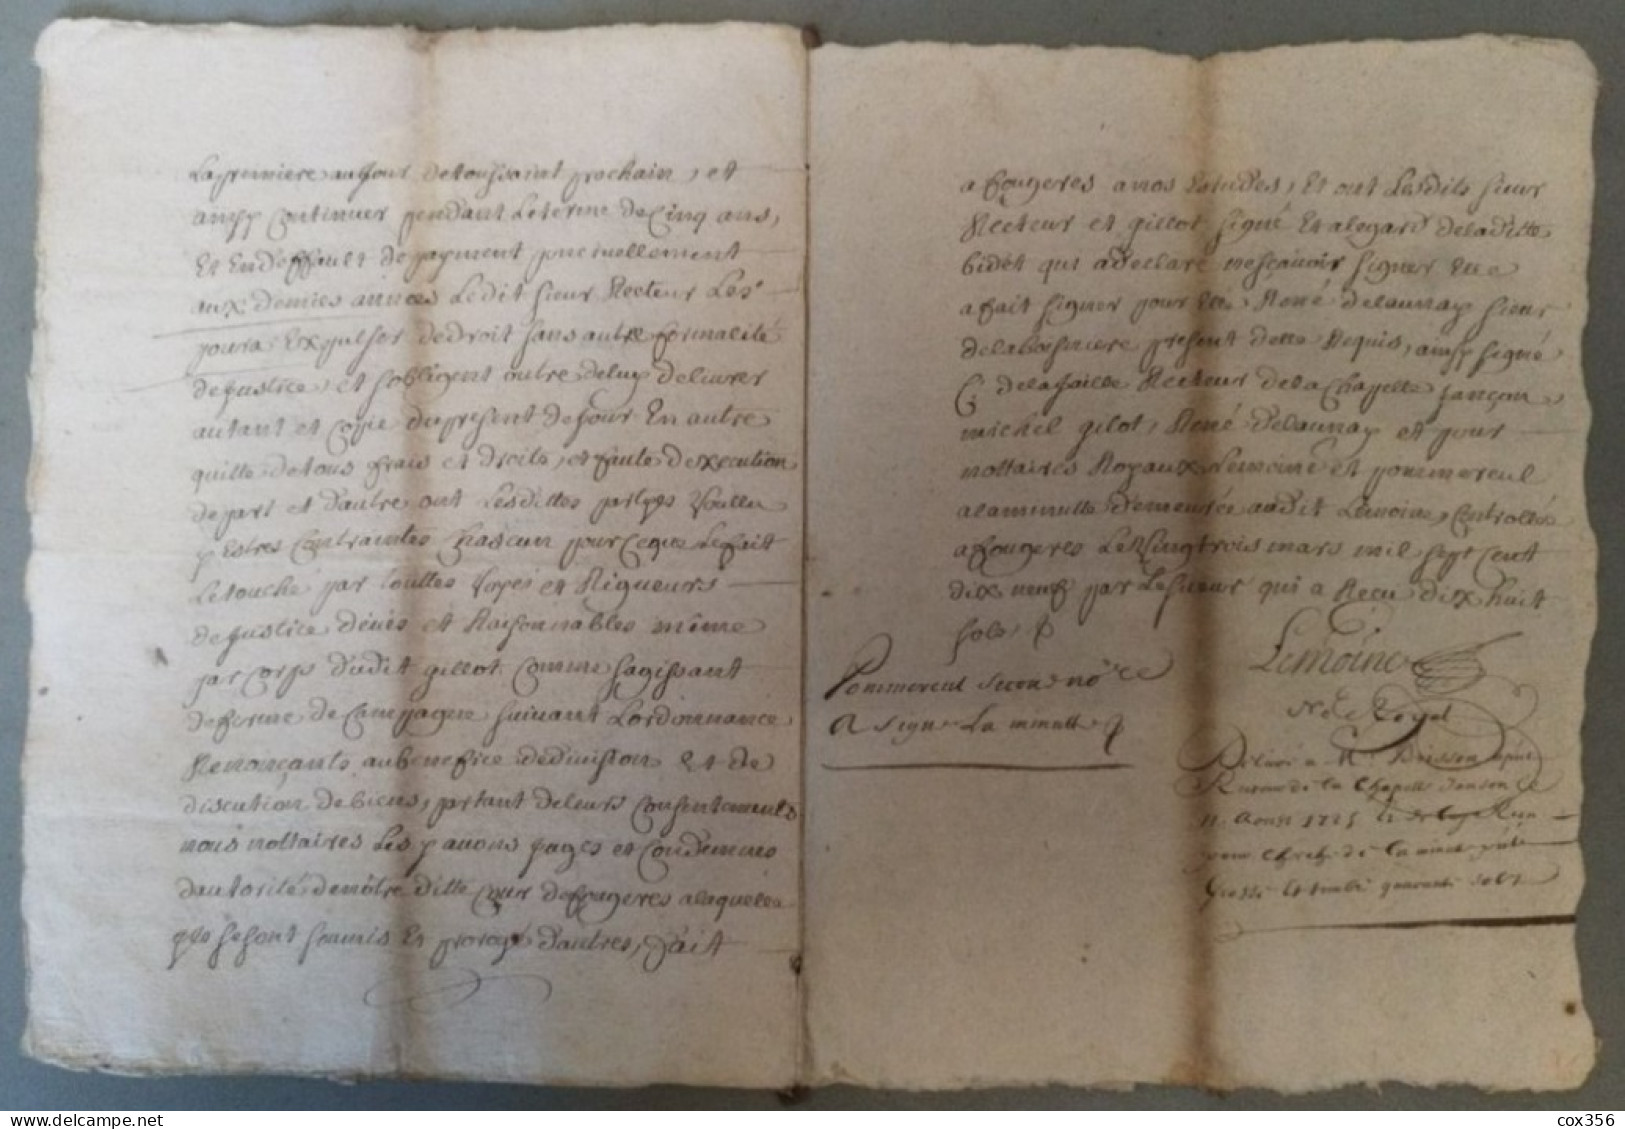 La premiere au Jour detoussaint prochain, et
ainsy Continuer pendant Leterme decinq ans,
Et Endeffault depayment poncıuellement
aux.d. annees Ledit sieur Recteur Les
poura Expulser dedroit sans autre formalité
deJustice, et sobligent outre deluy delivrer
autant et Copie dupresent deJour En autre
quitte detous frais et droits, et faute dexecution
depart et d'autre ont Lesdittes partyes voullu
y Estres Contraintes Chascun pour Ceque Lefait
Letouche par touttes voyes et Rigueurs
deJustice dües et Raisonnables même
par corps dudit gillot Comme sagissant
deferme de Campagne suivant Lordonnance
Renonçants aubenefice dedivision et de
discution debiens, partant deleurs Consentements
nous nottaires Les y avons Jugés et Condemnés
dautorité denôtre ditte Cour defougeres alaquelle
ils se sont soumis Et prorogé d'autres, fait
a fougeres a nos Estudes, Et ont Lesdits sieur
Recteur et gillot signé Et alegard deladitte
bidet qui adeclaré nesçavoir signer Elle
a fait signer pour Elle René delaunay sieur
present delle Requis, ainsy signé
C. delafaille Recteur dela Chapelle Janson,
michel gilot, René delaunay et pour
nottaires Royaux Lemoine et pommereul
alaminutte demeurée audit Lemoine, Controllée
a fougeres Levingttrois mars mil sept cent
dix neuf par Lesueur qui a Recu dix huit
sols.
Lemoine
Pommereul second no.re
a signé La minutte
No.re Royal
Delivré a M.
Recteur de la Chapelle Janson Le
11. Aoust 1725
pour de la minutte
Grosse Et timbre quarante sols
cox356